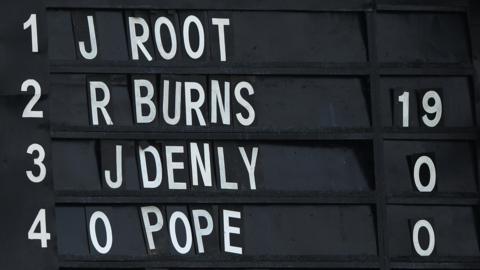 1 J ROOT
2 R BURNS 19
3 J DENLY 0
4 O POPE 0